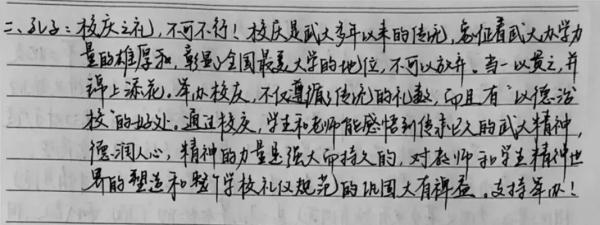 二、孔子：校庆之礼，不可不行！校庆是武大多年以来的传统，象征着武大办学力
量的雄厚和，彰显了全国最美大学的地位，不可以放弃。当一以贯之，并
锦上添花。举办校庆，不仅遵循了传统的礼数，而且有“以德治
校”的好处。通过校庆，学生和老师能感悟到传承已久的武大精神，
德润人心，精神的力量是强大而持久的，对教师和学生精神世
界的塑造和整个学校礼仪规范的巩固大有裨益。支持举办！